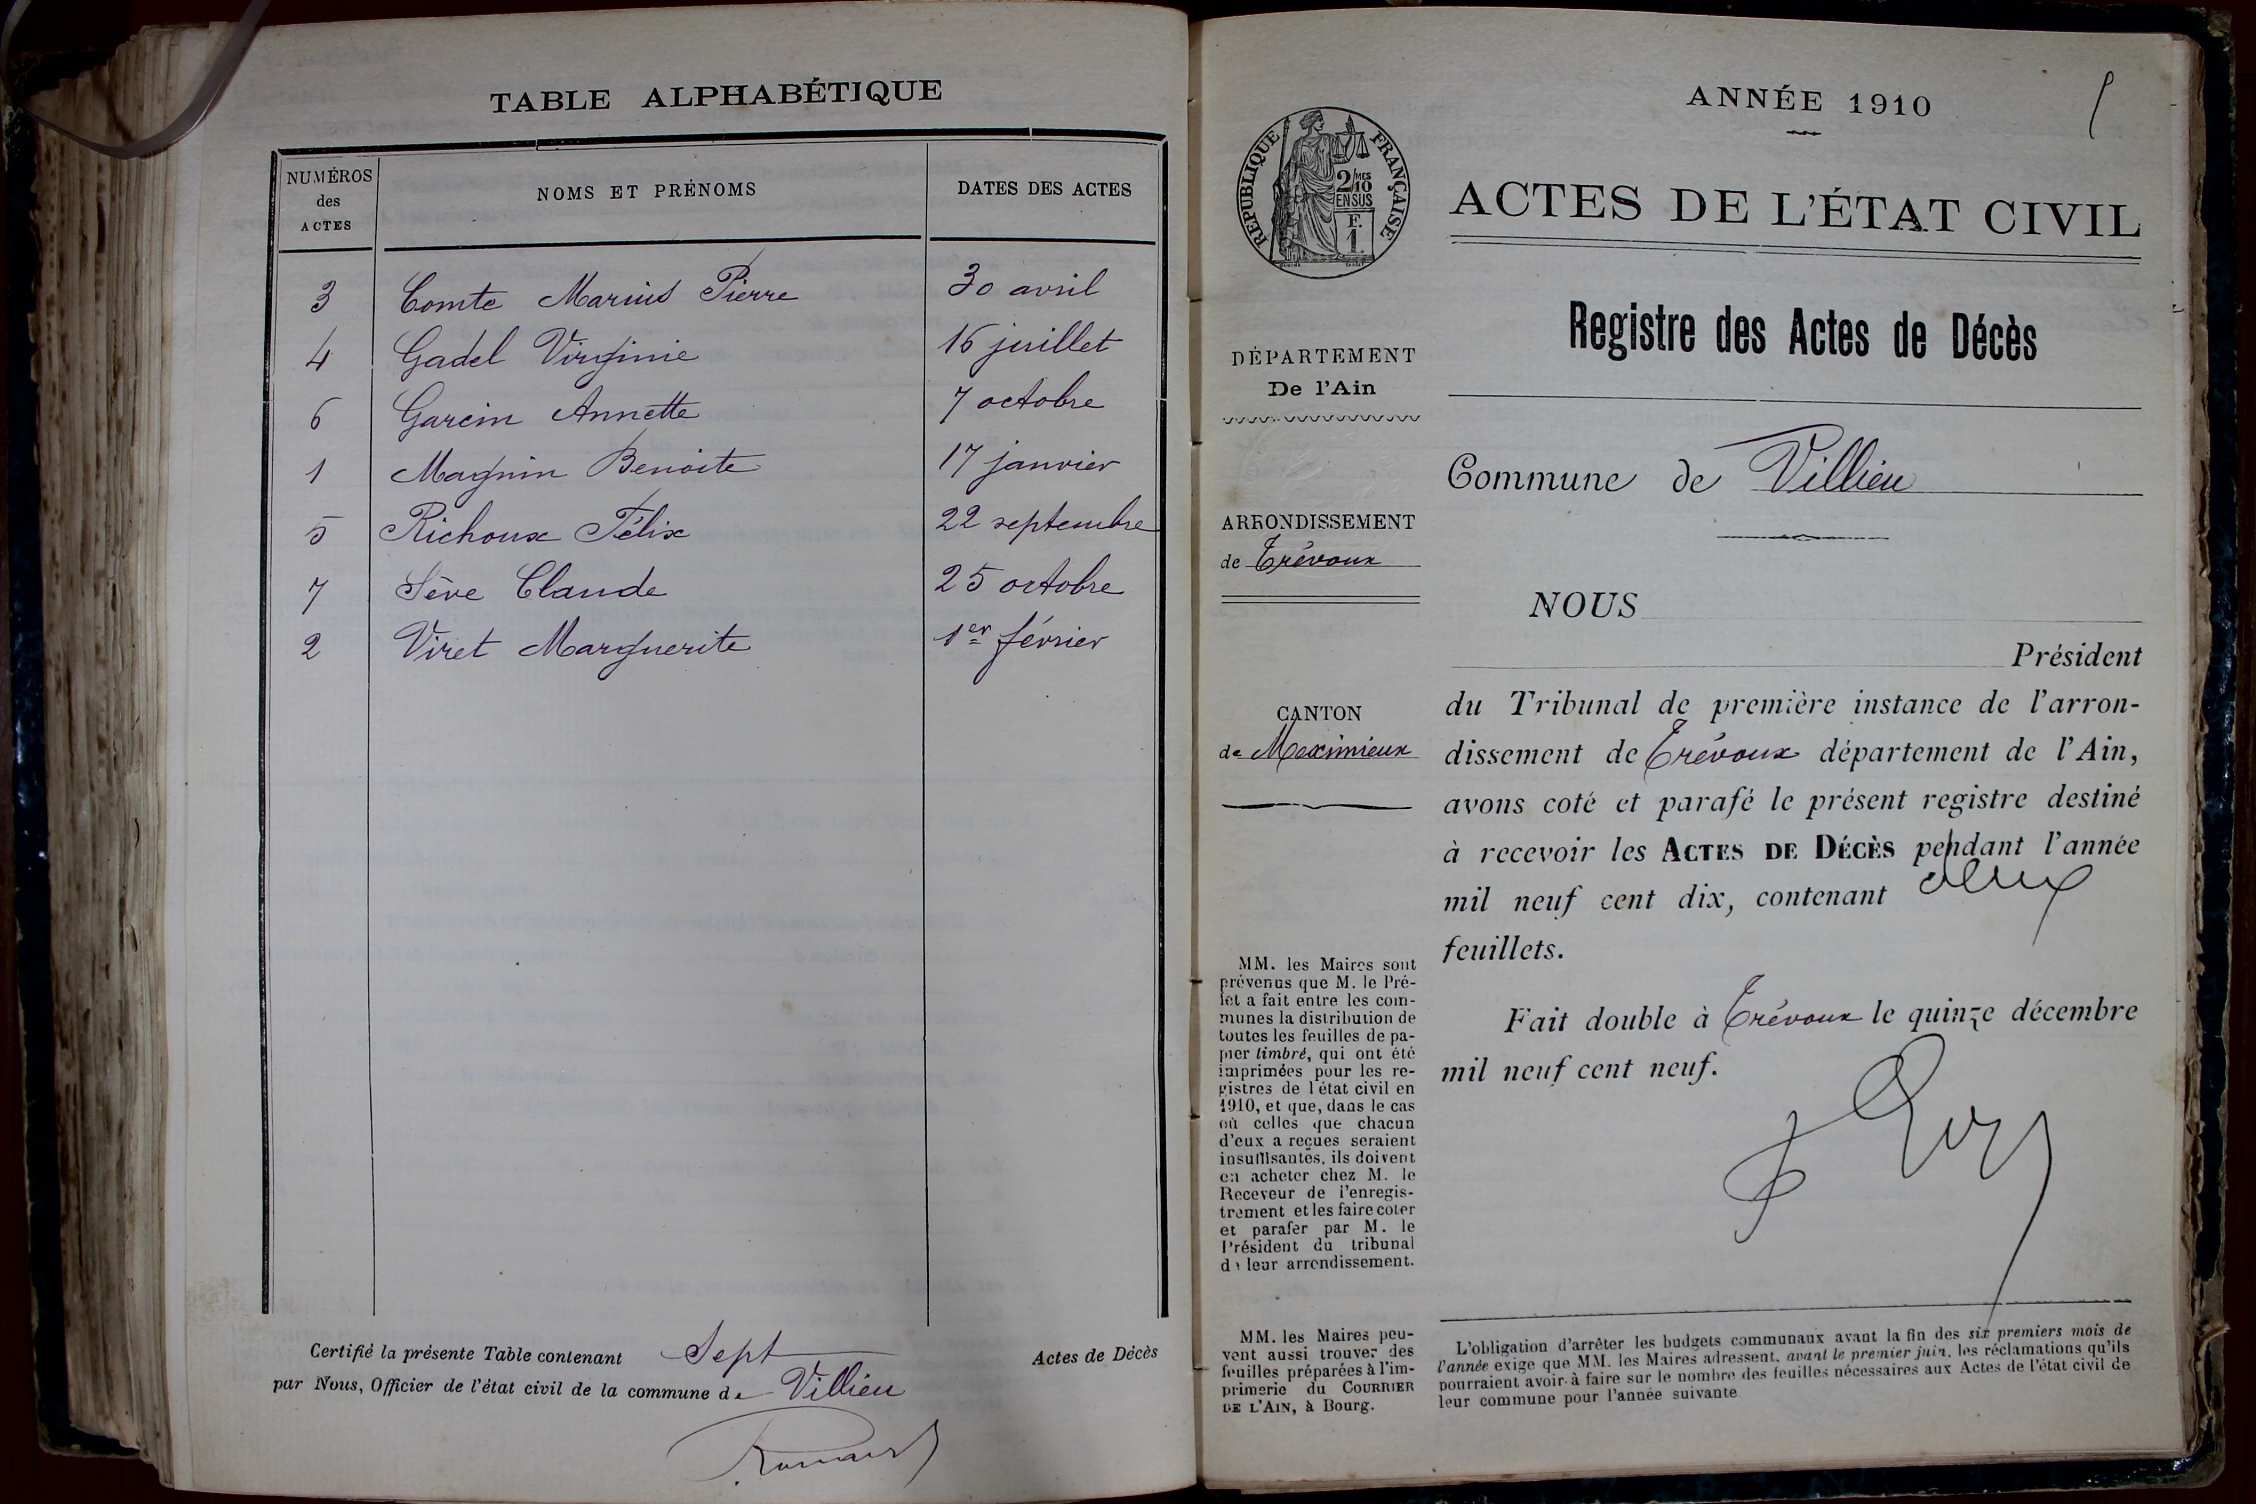 TABLE ALPHABÉTIQUE
NUMÉROS
des
ACTES
NOMS ET PRÉNOMS
DATES DES ACTES
3 Comte Marius Pierre 30 avril
4 Gadel Virginie 16 juillet
6 Garcin Annette 7 octobre
1 Magnin Benoite 17 janvier
5 Richoux Félix 22 septembre
7 Sève Claude 25 octobre
2 Viret Marguerite 1er février
Certifié la présente Table contenant Sept Actes de Décès
par Nous, Officier de l'état civil de la commune de Villieu
ANNÉE 1910
RÉPUBLIQUE FRANÇAISE
2/10 MES
EN SUS
F.
1.
ACTES DE L'ÉTAT CIVIL
Registre des Actes de Décès
DÉPARTEMENT
De l'Ain
Commune de Villieu
ARRONDISSEMENT
de Trévoux
CANTON
de Meximieux
NOUS
Président
du Tribunal de première instance de l'arron-
dissement de Trévoux département de l'Ain,
avons coté et parafé le présent registre destiné
à recevoir les ACTES DE DÉCÈS pendant l'année
mil neuf cent dix, contenant deux
feuillets.
Fait double à Trévoux le quinze décembre
mil neuf cent neuf.
MM. les Maires sont
prévenus que M. le Pré-
fet a fait entre les com-
munes la distribution de
toutes les feuilles de pa-
pier timbré, qui ont été
imprimées pour les re-
gistres de l'état civil en
1910, et que, dans le cas
où celles que chacun
d'eux a reçues seraient
insuffisantes, ils doivent
en acheter chez M. le
Receveur de l'enregis-
trement et les faire coter
et parafer par M. le
Président du tribunal
de leur arrondissement.
MM. les Maires peu-
vent aussi trouver des
feuilles préparées à l'im-
primerie du COURRIER
DE L'AIN, à Bourg.
L'obligation d'arrêter les budgets communaux avant la fin des six premiers mois de
l'année exige que MM. les Maires adressent, avant le premier juin, les réclamations qu'ils
pourraient avoir à faire sur le nombre des feuilles nécessaires aux Actes de l'état civil de
leur commune pour l'année suivante